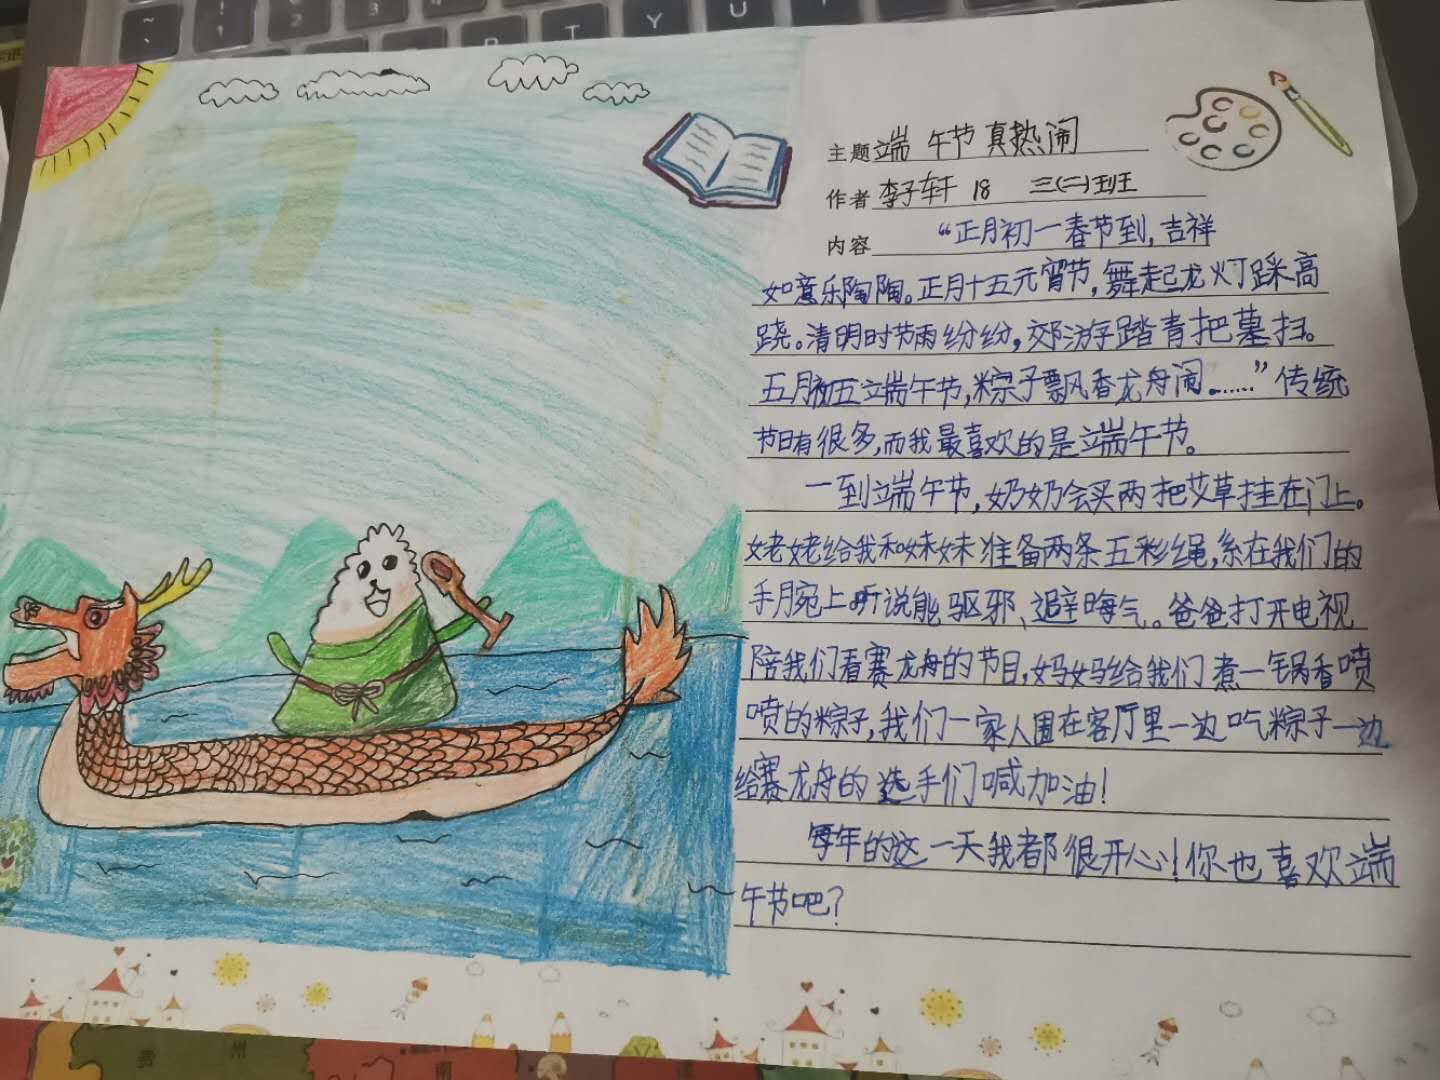 主题 端午节真热闹
作者 李子轩 18 三(二)班
内容 “正月初一春节到,吉祥
如意乐陶陶。正月十五元宵节,舞起龙灯踩高
跷。清明时节雨纷纷,郊游踏青把墓扫。
五月初五端午节,粽子飘香龙舟闹。……”传统
节日有很多,而我最喜欢的是端午节。
一到端午节,奶奶会买两把艾草挂在门上。
姥姥给我和妹妹准备两条五彩绳,系在我们的
手腕上听说能驱邪、避晦气。爸爸打开电视
陪我们看赛龙舟的节目,妈妈给我们煮一锅香喷
喷的粽子,我们一家人围在客厅里一边吃粽子一边
给赛龙舟的选手们喊加油!
每年的这一天我都很开心!你也喜欢端
午节吧?
Y U
贵 州
南